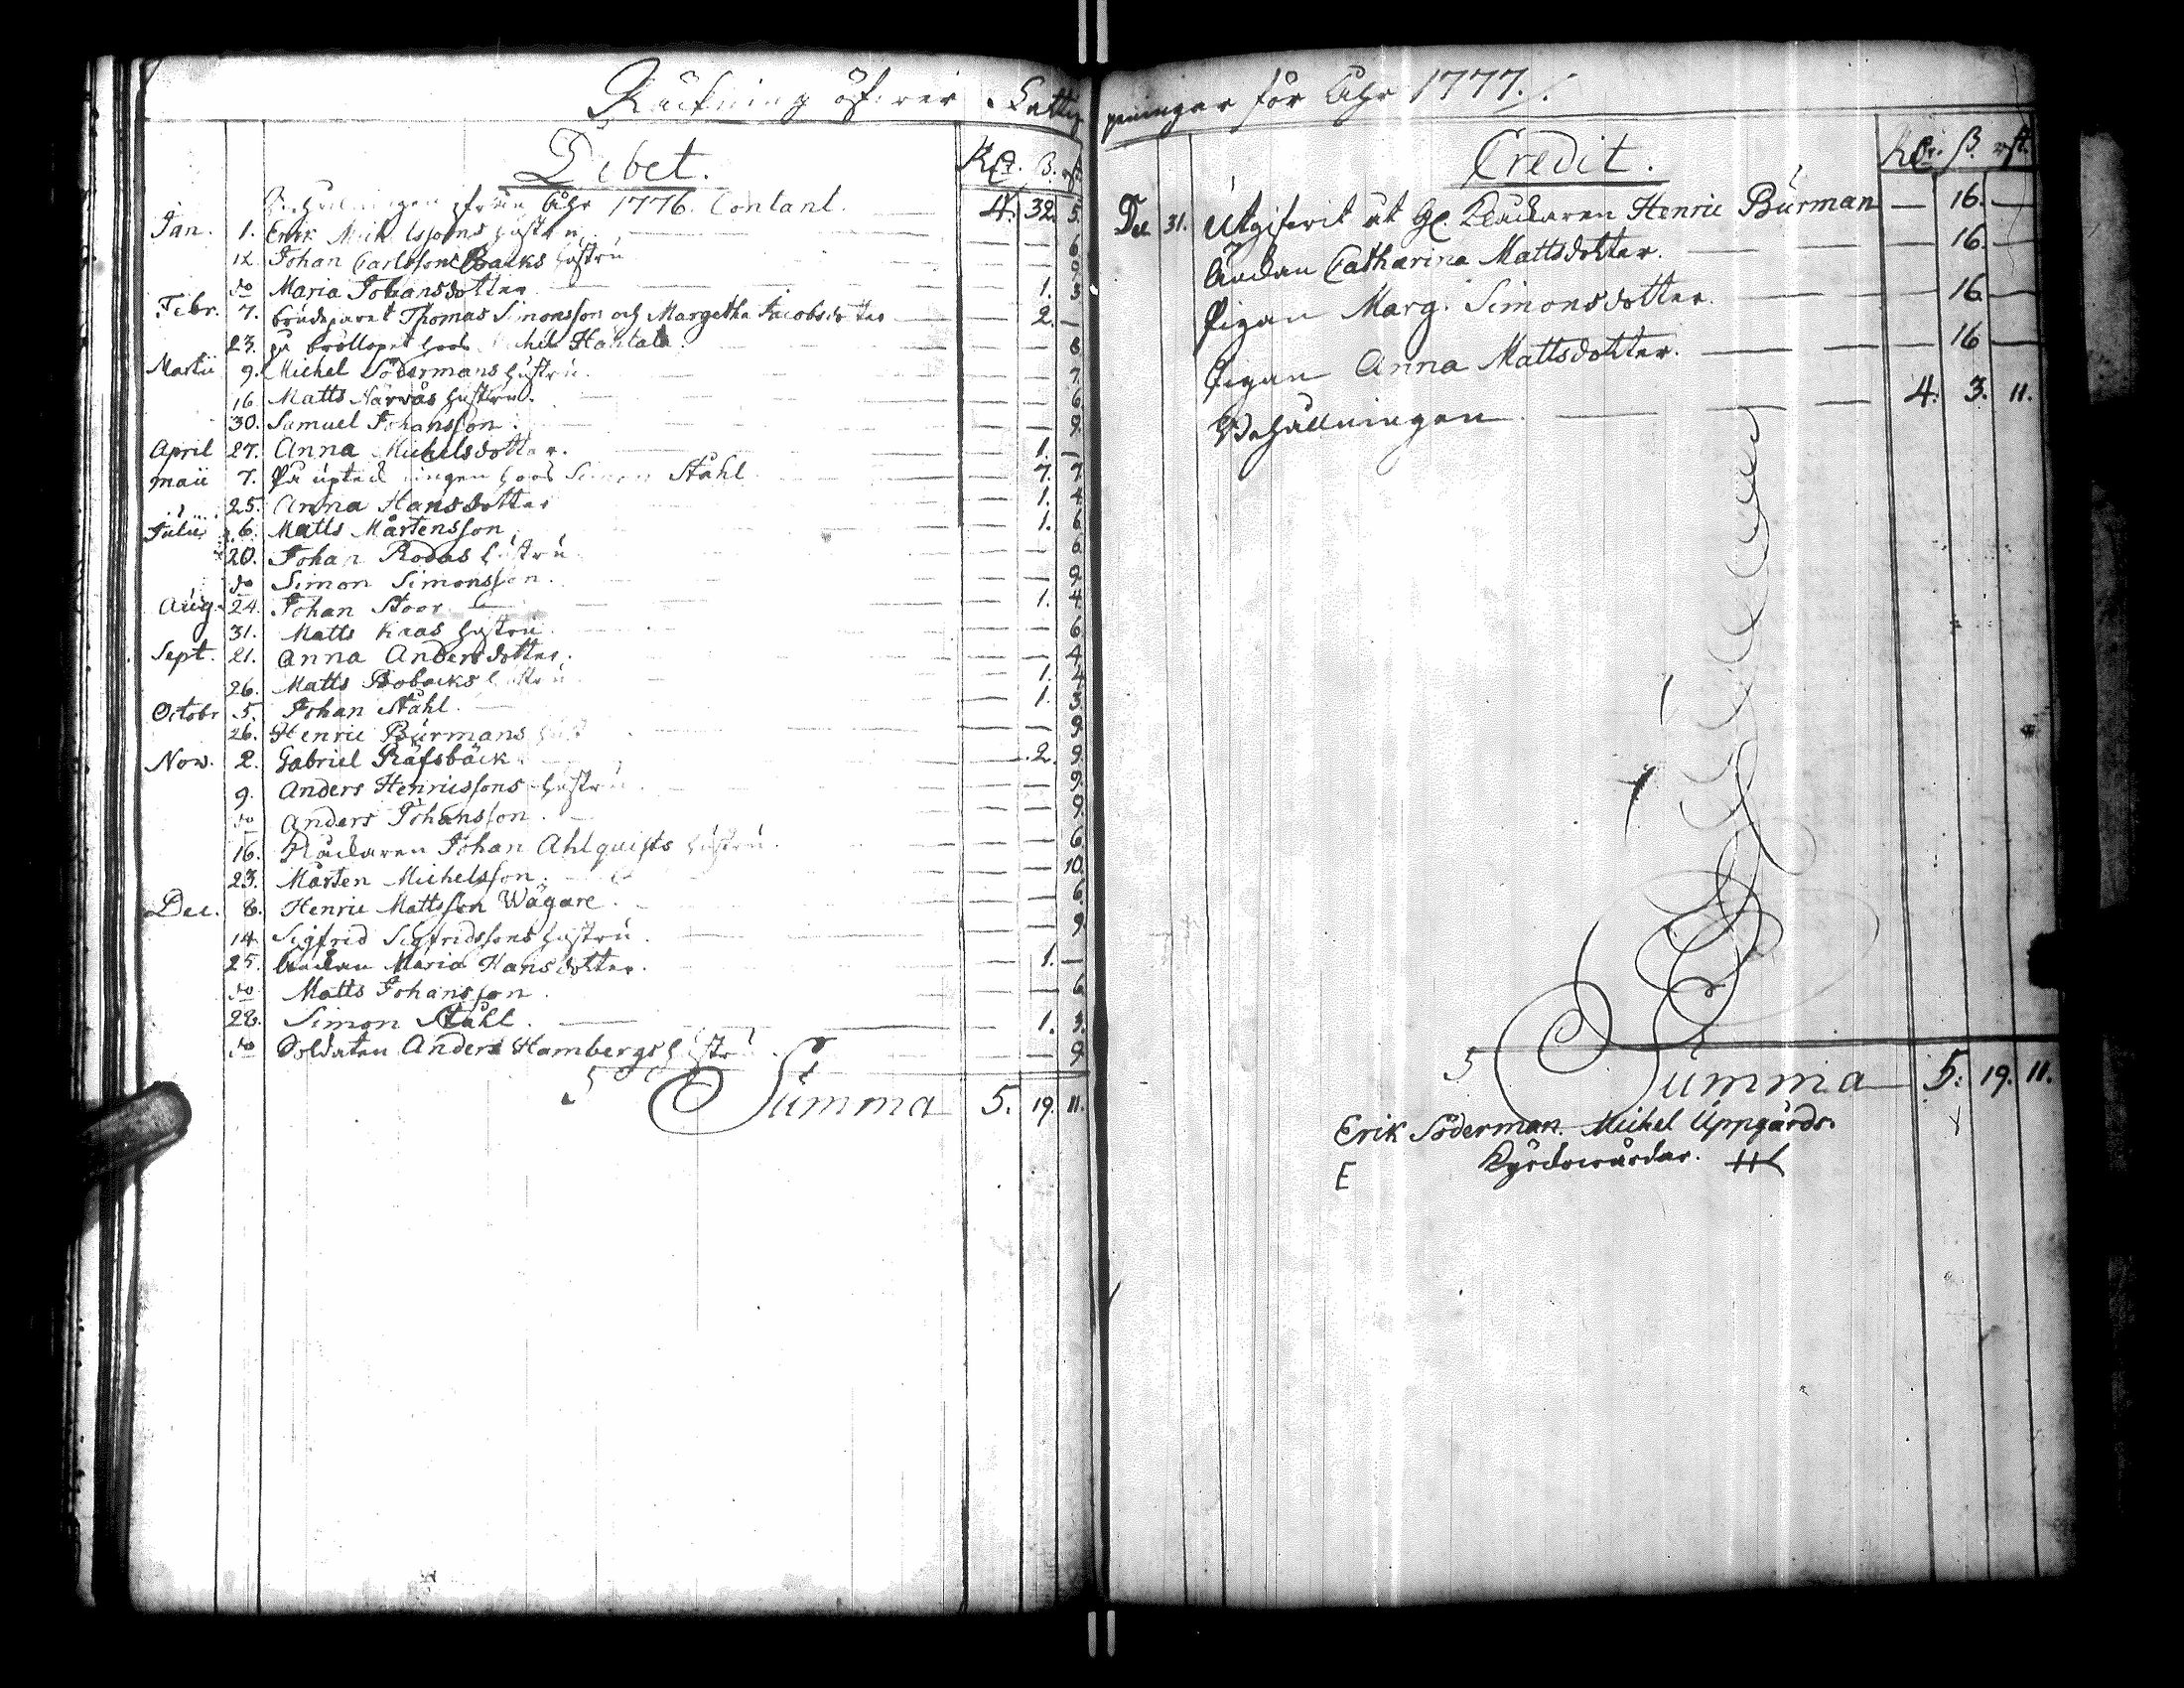 Räkning öfwer Fattig
Debet.
Rd. ß. rst.
Behållningen ifrån Åhr 1776. Contant. — 4. 32. 5.
Jan. 1. Erik Michelssons hustru. — — — 6.
12. Johan Carlssons Backs hustru — — 9.
do Maria Johansdotter — — 1. 3.
Febr. 7. brudparet Thomas Simonsson och Margetha Jacobsdotter — 2. —
23. på bröllopet hos Hantala. — — 8.
Martii 9. Michel Södermans hustru. — — 7.
16. Matts Närvås hustru. — — 6.
30. Samuel Johansson. — — 9.
April 27. Anna Michelsdotter. — 1. —
Maii 7. På hos Simon Ståhl — 7. 7.
25. Anna Hansdotter — 1. 4.
Julii 6. Matts Mårtensson — 1. 6.
20. Johan Rodas hustru — — 6.
do Simon Simonsson. — — 9.
Aug. 24. Johan Stoor. — 1. 4.
31. Matts Kaas hustru. — — 6.
Sept. 21. Anna Andersdotter. — — 4.
26. Matts Bobacks hustru — 1. 4.
Octobr 5. Johan Ståhl. — 1. 3.
26. Henric Burmans hust — — 9.
Nov. 2. Gabriel Räfsbäck. — 2. 9.
9. Anders Henricssons hustru — — 9.
do Anders Johansson. — — 9.
16. Klåckaren Johan Ahlquists hustru. — — 6.
23. Mårten Michelsson. — — 10.
Dec. 8. Henric Mattsson Wägare. — — 6.
14. Sigfrid Sigfridssons hustru. — — 9.
25. Änckan Maria Hansdotter. — 1. —
do Matts Johansson. — — 6.
28. Simon Ståhl. — 1. 3.
do Soldaten Anders Hambergs hustru. — — 9.
Summa 5. 19. 11.
peningar för Åhr 1777.
Credit.
Rdr. ß. rst.
Dec 31. Utgifwit åt Gl. Klåckaren Henric Burman — 16. —
Änckan Catharina Mattsdotter. — 16. —
Pigan Marg. Simonsdotter. — — 16. —
Pigan Anna Mattsdotter. — — 16 —
Behållningen. — 4. 3. 11.
Summa 5. 19. 11.
Erik Söderman. Michel Uppgårds.
E Kyrckowärdar.